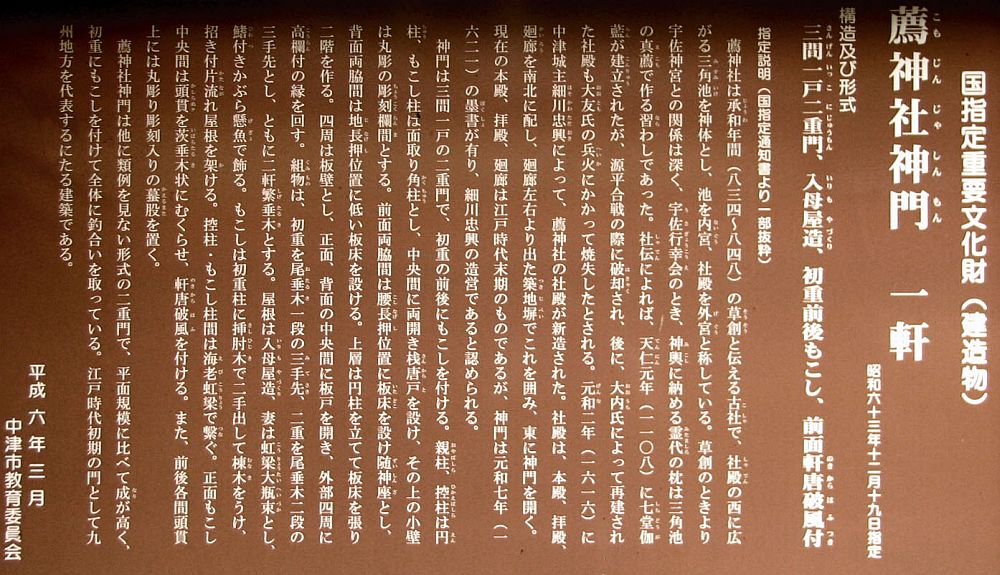 国指定重要文化財（建造物）
昭和六十三年十二月十九日指定
薦神社神門　一軒
構造及び形式
三間一戸二重門、入母屋造、初重前後もこし、前面軒唐破風付
指定説明（国指定通知書より一部抜粋）
薦神社は承和年間（八三四～八四八）の草創と伝える古社で、社殿の西に広
がる三角池を神体とし、池を内宮、社殿を外宮と称している。草創のときより
宇佐神宮との関係は深く、宇佐行幸会のとき、神輿に納める霊代の枕は三角池
の真薦で作る習わしであった。社伝によれば、天仁元年（一一〇八）に七堂伽
藍が建立されたが、源平合戦の際に破却され、後に、大内氏によって再建され
た社殿も大友氏の兵火にかかって焼失したとされる。元和二年（一六一六）に
中津城主細川忠興によって、薦神社の社殿が新造された。社殿は、本殿、拝殿、
廻廊を南北に配し、廻廊左右より出た築地塀でこれを囲み、東に神門を開く。
現在の本殿、拝殿、廻廊は江戸時代末期のものであるが、神門は元和七年（一
六二一）の墨書が有り、細川忠興の造営であると認められる。
神門は三間一戸の二重門で、初重の前後にもこしを付ける。親柱、控柱は円
柱、もこし柱は面取り角柱とし、中央間に両開き桟唐戸を設け、その上の小壁
は丸彫の彫刻欄間とする。前面両脇間は腰長押位置に板床を設け随神座とし、
背面両脇間は地長押位置に低い板床を設ける。上層は円柱を立てて板床を張り
二階を作る。四周は板壁とし、正面、背面の中央間に板戸を開き、外部四周に
高欄付の縁を回す。組物は、初重を尾垂木一段の三手先、二重を尾垂木二段の
三手先とし、ともに二軒繁垂木とする。屋根は入母屋造、妻は虹梁大瓶束とし、
鰭付きかぶら懸魚で飾る。もこしは初重柱に挿肘木で二手出して棟木をうけ、
招き付片流れ屋根を架ける。控柱・もこし柱間は海老虹梁で繋ぐ。正面もこし
中央間は頭貫を茨垂木状にむくらせ、軒唐破風を付ける。また、前後各間頭貫
上には丸彫り彫刻入りの蟇股を置く。
薦神社神門は他に類例を見ない形式の二重門で、平面規模に比べて成が高く、
初重にもこしを付けて全体に釣合いを取っている。江戸時代初期の門として九
州地方を代表するにたる建築である。
平成六年三月
中津市教育委員会